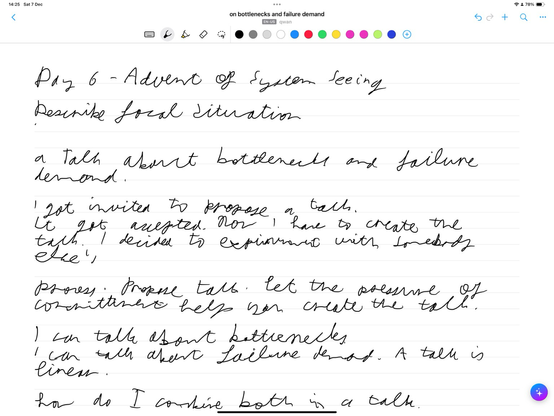 14:25 Sat 7 Dec
78%
on bottlenecks and failure demand
Day 6 - Advent of System Seeing
Describe focal situation
a Talk about bottlenecks and failure
demand.
I got invited to propose a talk.
It got accepted. Now I have to create the
talk. I decided to experiment with somebody
else's
process. Propose talk. Let the pressure of
committment help you create the talk.
I can talk about bottlenecks
I can talk about failure demand. A talk is
linear.
how do I combine both in a talk.